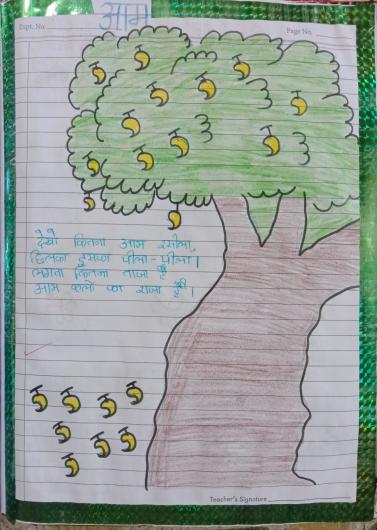 आम
Expt. No.
Page No.
देखो कितना आम रसीला,
छिलका इसका पीला-पीला।
लगता कितना ताजा है
आम फलो का राजा है।
Teacher's Signature